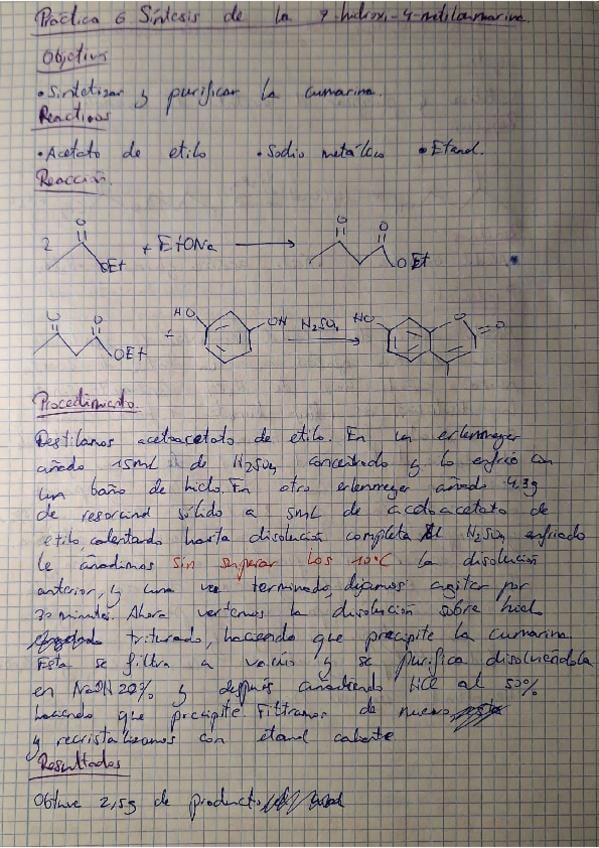 Práctica 6 Síntesis de la 7-hidroxi-4-metilcumarina.
Objetivo
• Sintetizar y purificar la cumarina.
Reactivos
• Acetato de etilo • Sodio metálico • Etanol.
Reacción.
2 O OEt + EtONa → O O OEt
O O OEt + HO OH H2SO4 → HO O O
Procedimiento.
Destilamos acetoacetato de etilo. En un erlenmeyer
añado 15mL de H2SO4 concentrado y lo enfrió con
un baño de hielo. En otro erlenmeyer añado 4,3g
de resorcinol sólido a 5mL de acetoacetato de
etilo, calentando hasta disolución completa. Al H2SO4 enfriado
le añadimos sin superar los 10°C la disolución
anterior, y una vez terminado, dejamos agitar por
30 minutos. Ahora vertemos la disolución sobre hielo
triturado, haciendo que precipite la cumarina.
Esta se filtra a vacío y se purifica disolviéndola
en NaOH 20% y después añadiendo HCl al 50%
haciendo que precipite. Filtramos de nuevo
y recristalizamos con etanol caliente.
Resultados
Obtuve 2,5g de producto